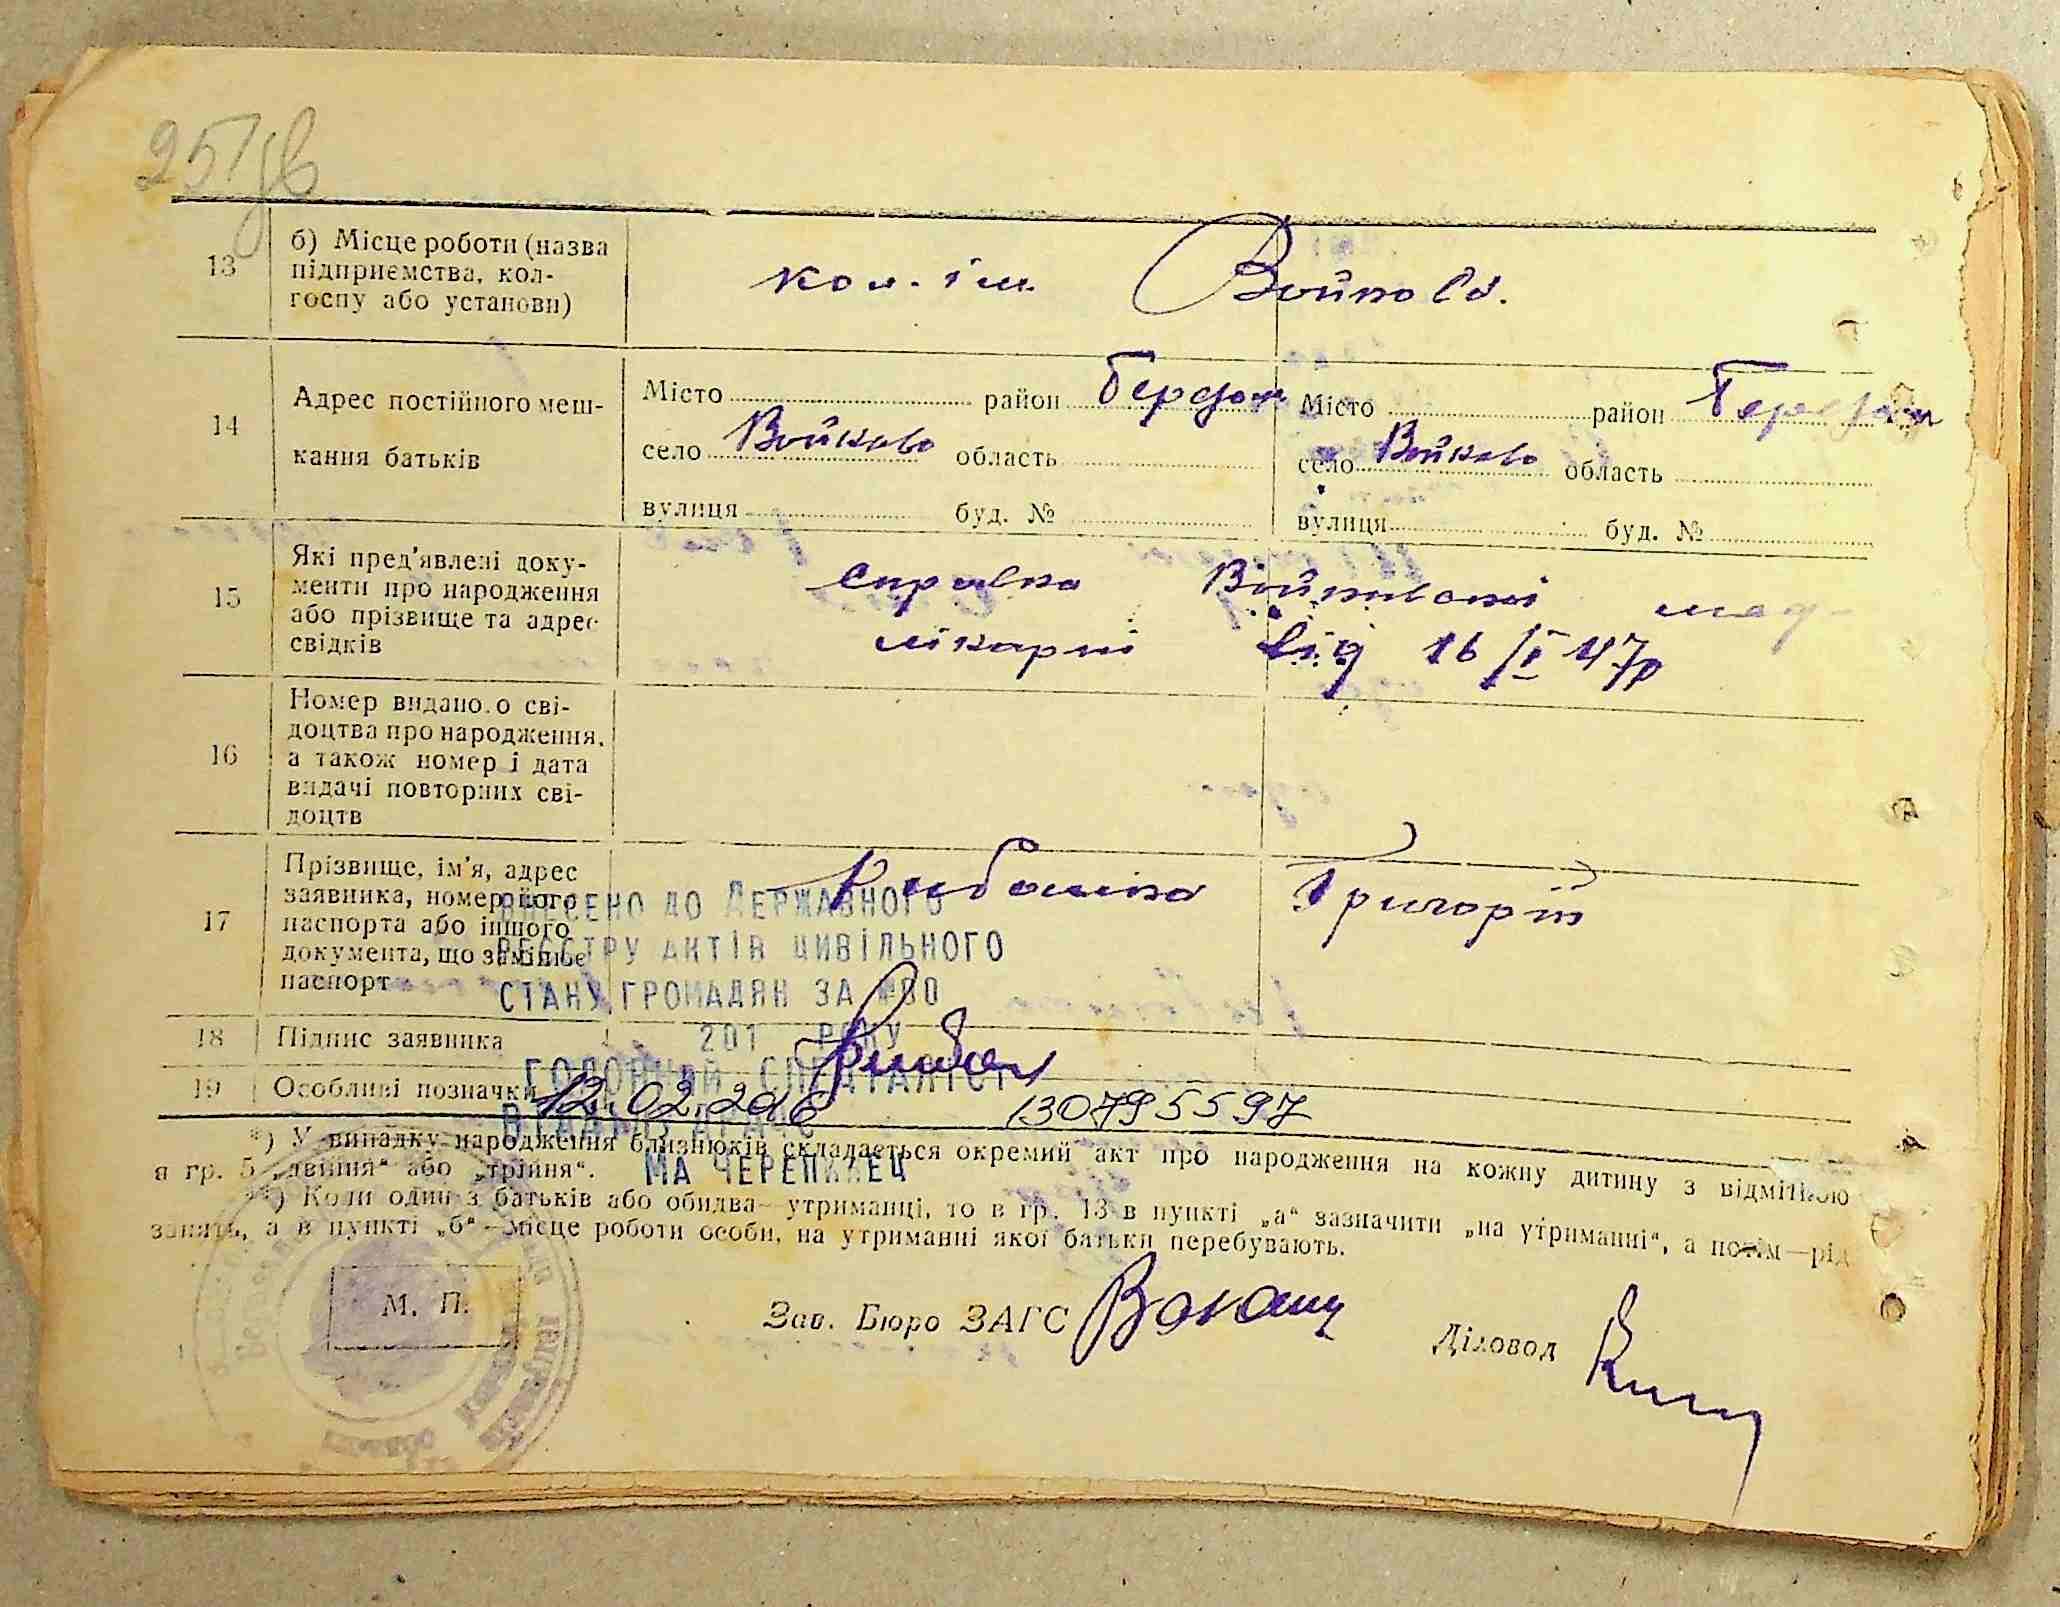 251зв
13
б) Місце роботи (назва
підприємства, кол-
госпу або установи)
кол. ім. Войкова.
14
Адрес постійного меш-
кання батьків
Місто район Бердян
село Войково область
вулиця буд. №
Місто район Бердян
село Войково область
вулиця буд. №
15
Які пред'явлені доку-
менти про народження
або прізвище та адрес
свідків
справка Войківської мед-
лікарні від 16/I 47р
16
Номер видано.о сві-
доцтва про народження,
а також номер і дата
видачі повторних сві-
доцтв
17
Прізвище, ім'я, адрес
заявника, номер його
паспорта або іншого
документа, що замінює
паспорт
Григорій
18
Підпис заявника
19
Особливі позначки
ВНЕСЕНО ДО ДЕРЖАВНОГО
РЕЄСТРУ АКТІВ ЦИВІЛЬНОГО
СТАНУ ГРОМАДЯН ЗА
201 РОКУ
ГОЛОВНИЙ СПЕЦІАЛІСТ
12.02.2016 130795597
МА ЧЕРЕПИНЕЦ
*) У випадку народження близнюків складається окремий акт про народження на кожну дитину з відміткою
в гр. 5 „двійня“ або „трійня“.
**) Коли один з батьків або обидва—утриманці, то в гр. 13 в пункті „а“ зазначити „на утриманні“, а потім—рід
занять, а в пункті „б“—місце роботи особи, на утриманні якої батьки перебувають.
М. П.
Зав. Бюро ЗАГС
Діловод